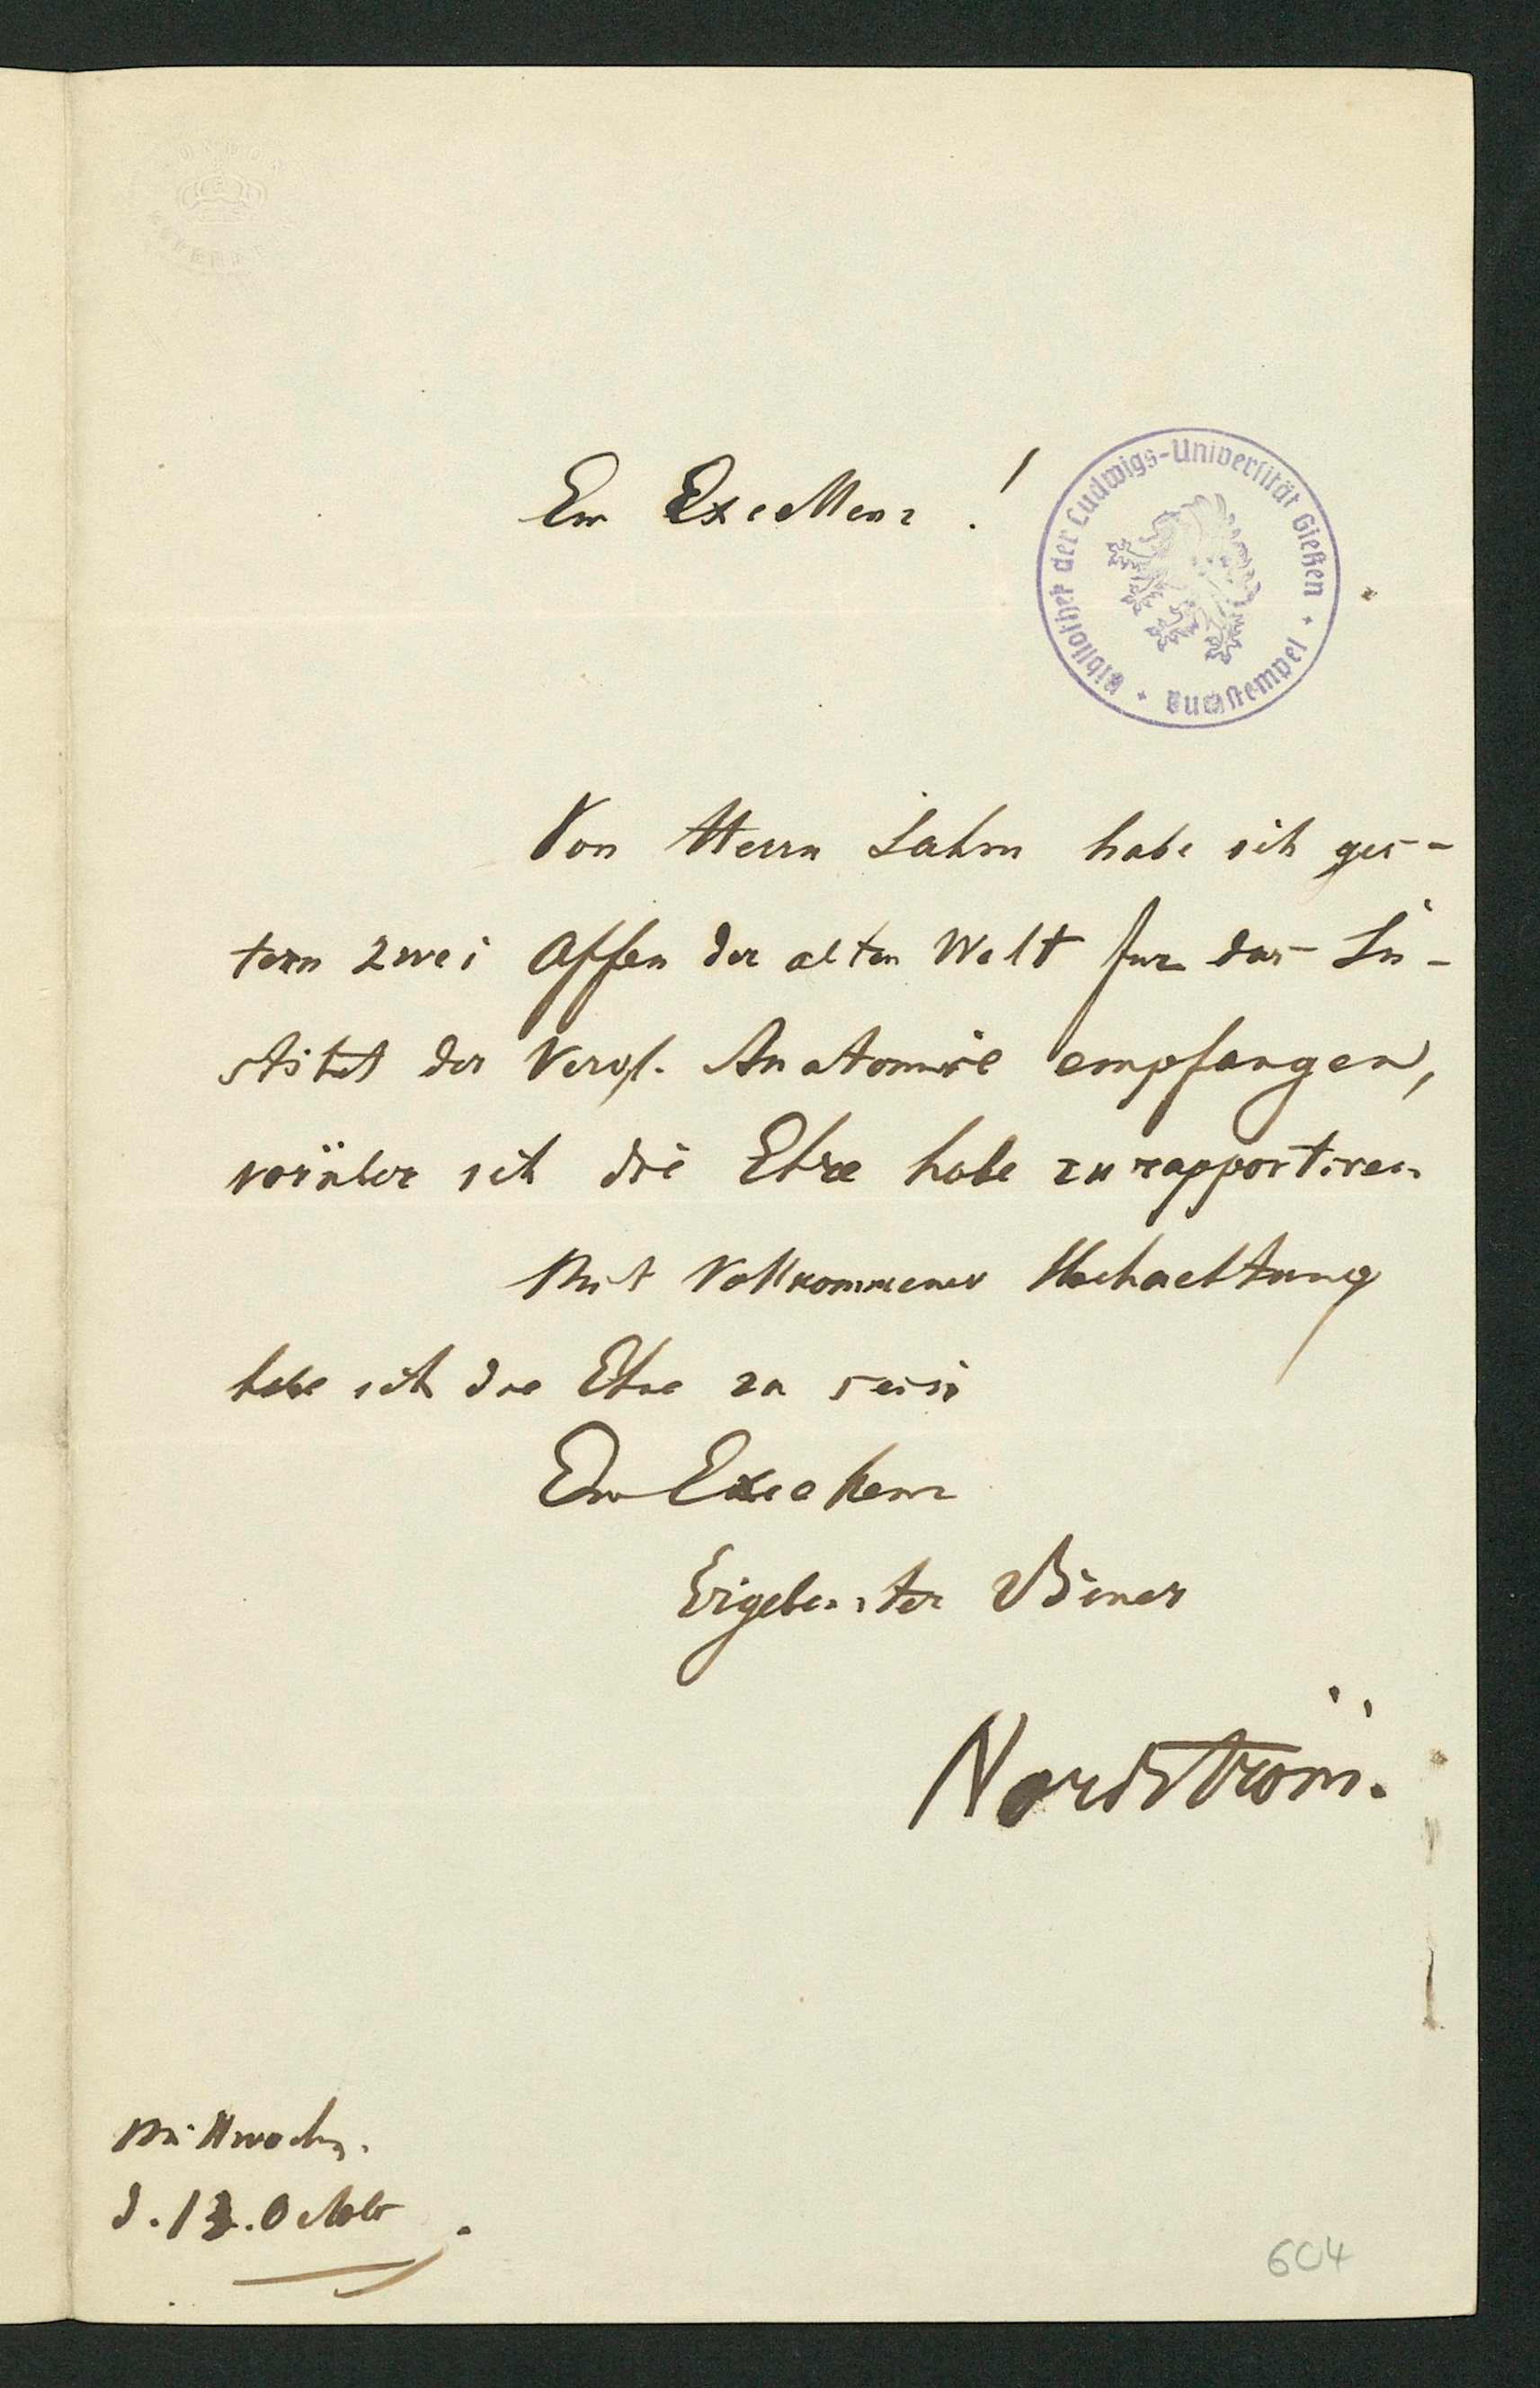 LONDON
SUPERFINE
Ew Excellenz !
Bibliothek der Ludwigs-Universität Gießen * Buchstempel *
Von Herrn Lahm habe ich ges-
tern zwei Affen der alten Welt fur das In-
stitut der Vergl. Anatomie empfangen,
worüber ich die Ehre habe zu rapportiren
Mit Vollkommener Hochachtung
habe ich die Ehre zu sein
Ew Excellenz
Ergebenster Diener
Nordström.
Mittwoch.
d. 13. October.
604